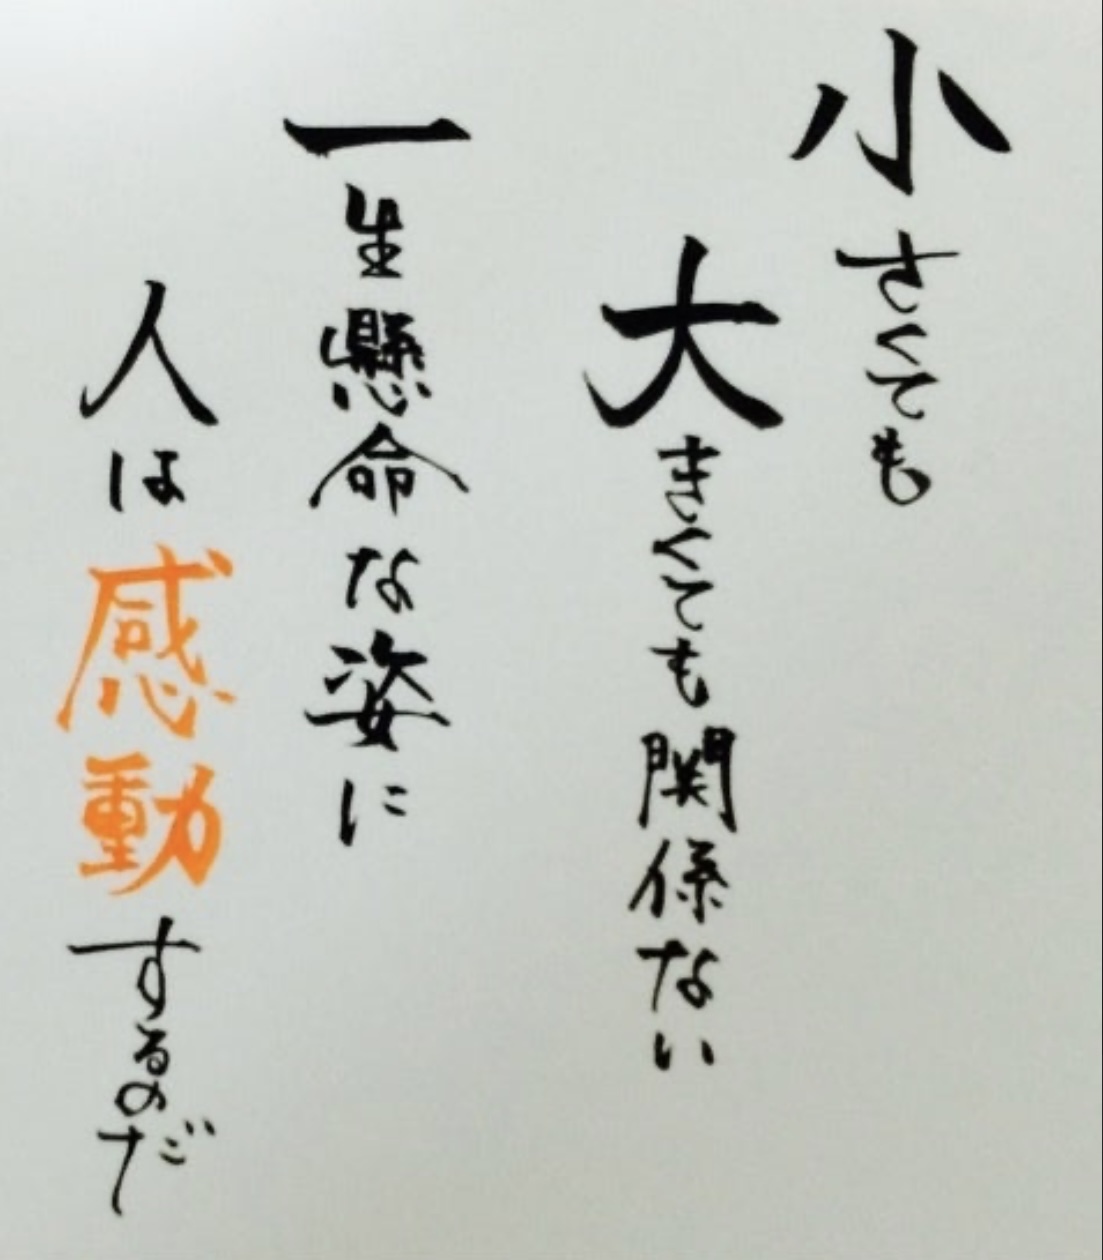 小さくても
大きくても関係ない
一生懸命な姿に
人は感動するのだ